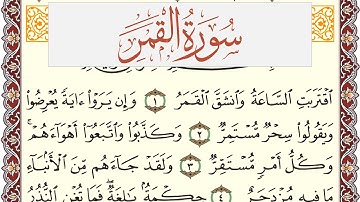 سُورَةُ القَمَرِ
ٱقۡتَرَبَتِ ٱلسَّاعَةُ وَٱنشَقَّ ٱلۡقَمَرُ ١ وَإِن يَرَوۡاْ ءَايَةٗ يُعۡرِضُواْ
وَيَقُولُواْ سِحۡرٞ مُّسۡتَمِرّٞ ٢ وَكَذَّبُواْ وَٱتَّبَعُوٓاْ أَهۡوَآءَهُمۡۚ
وَكُلُّ أَمۡرٖ مُّسۡتَقِرّٞ ٣ وَلَقَدۡ جَآءَهُم مِّنَ ٱلۡأَنۢبَآءِ
مَا فِيهِ مُزۡدَجَرٌ ٤ حِكۡمَةُۢ بَٰلِغَةٞۖ فَمَا تُغۡنِ ٱلنُّذُرُ